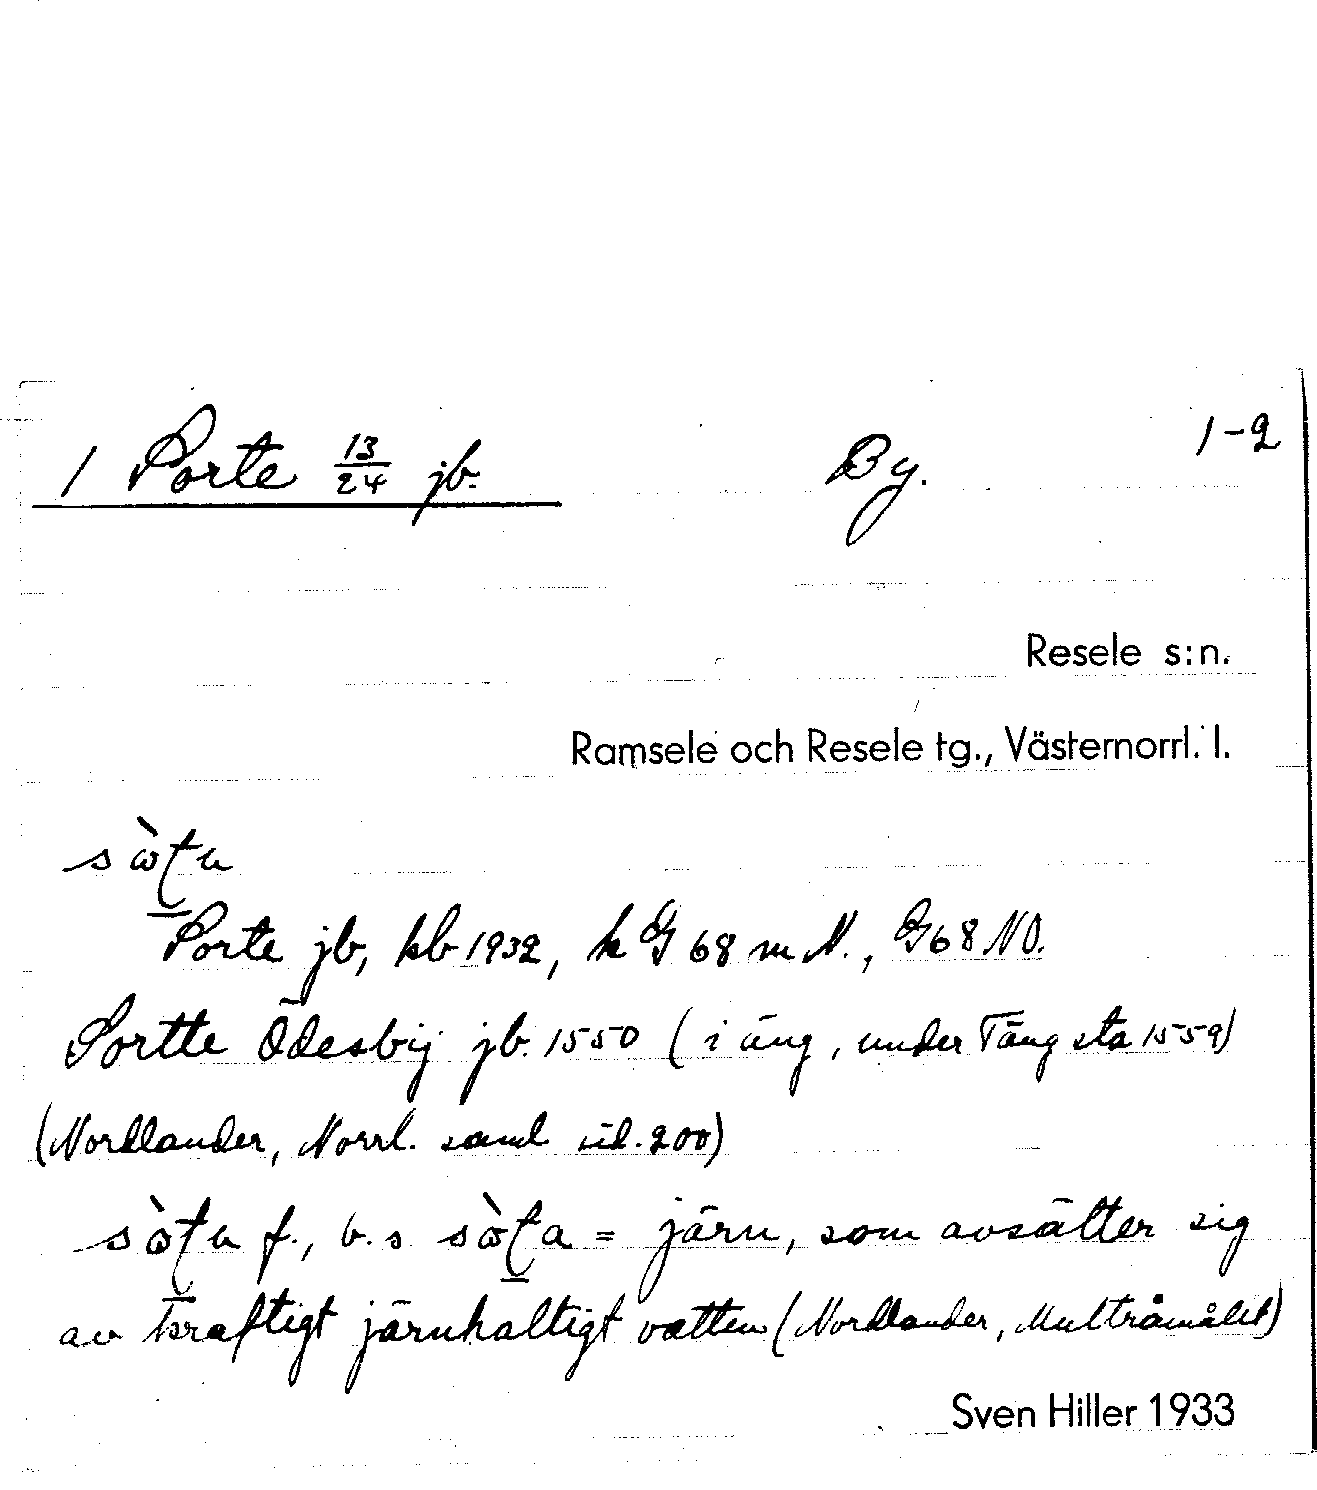 1 Sorte 13/24 jb. By. 1-2
Resele s:n.
Ramsele och Resele tg., Västernorrl. l.
Sorte jb, kb 1932, k G 68 m N., G68 NO.
Sortte Ödesbÿ jb. 1550 (i äng, under Tängsta 1559)
(Nordlander, Norrl. saml sid. 200)
f., b. s = järn, som avsätter sig
av kraftigt järnhaltigt vatten (Nordlander, Multråmålet)
Sven Hiller 1933